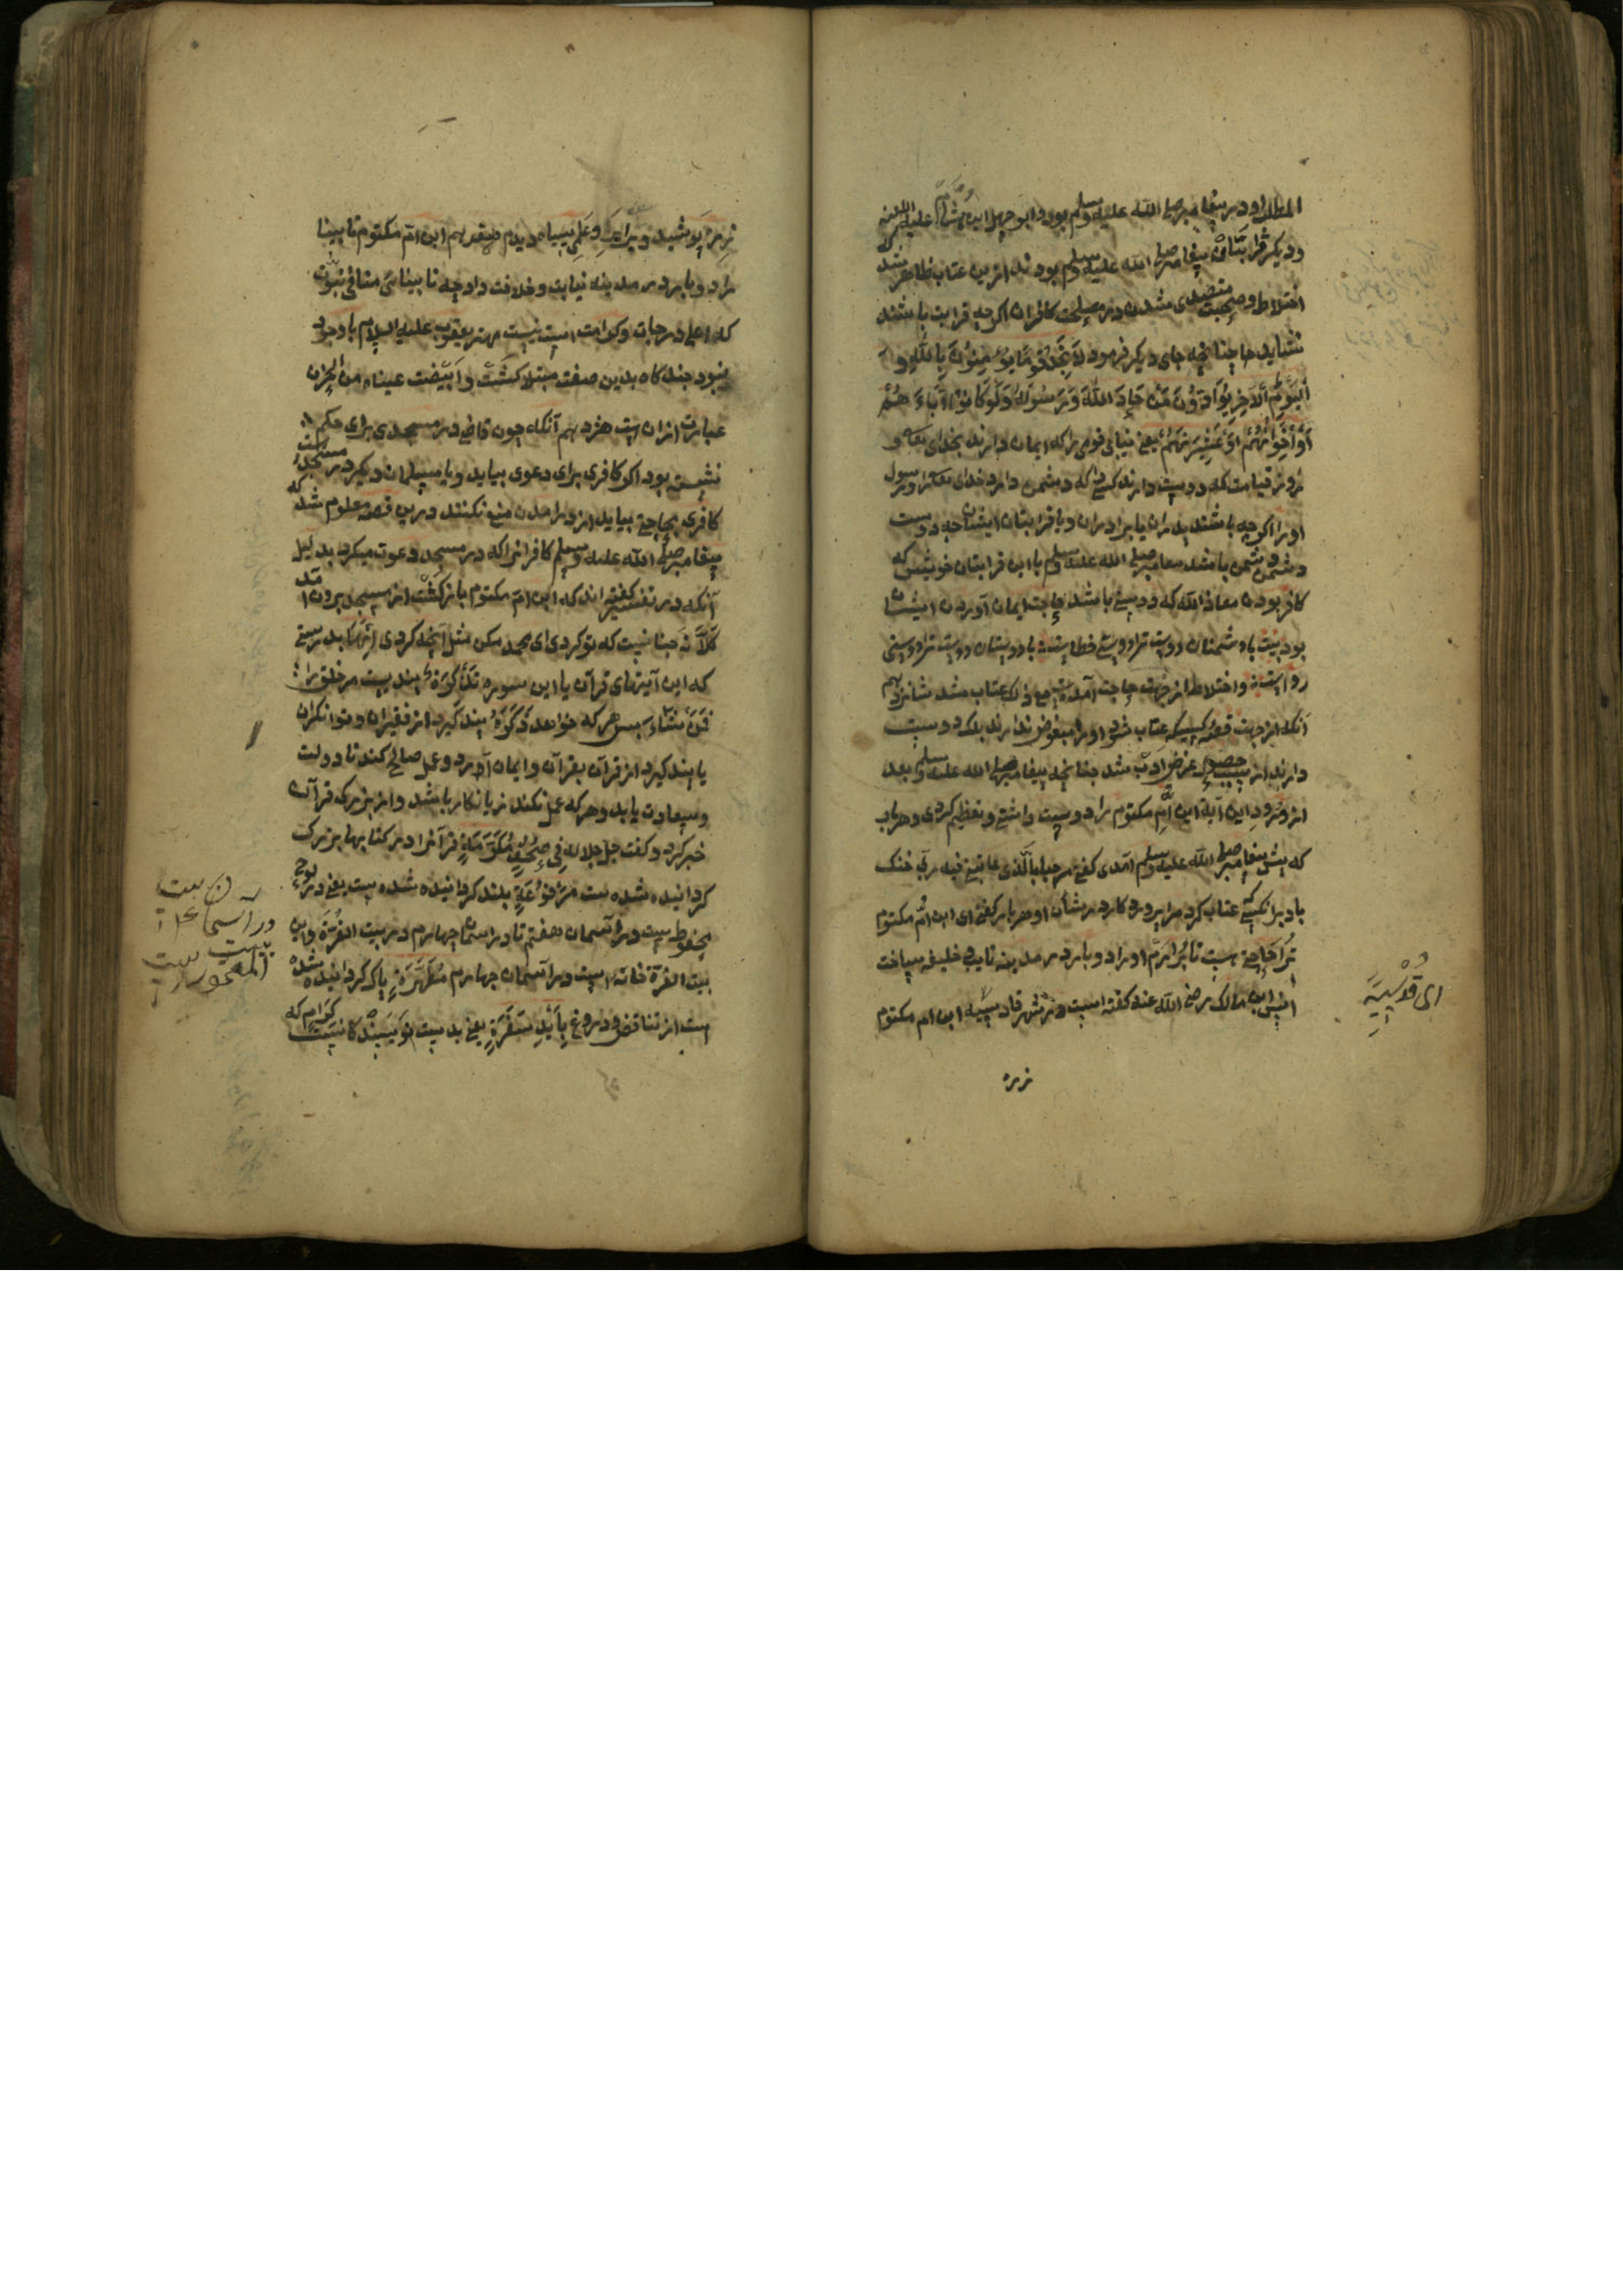 المطلب و در پیغامبر صلی الله علیه وسلم بود و ابوجهل ابن هشام علیه اللعنه
و دیگر قرابتان پیغامبر صلی الله علیه وسلم بودند ازین عتاب ظاهر شد که
اختلاط و صحبت متصدی شدن در مصلحت کافران اگرچه قرابت باشند
نشاید چنانچه جای دیگر فرمود لا تجد قوما یؤمنون بالله و
الیوم الآخر یوادون من حاد الله ورسوله ولو کانوا آباءهم
أو إخوانهم أو عشیرتهم یعنی نیابی قومی را که ایمان دارند بخدای تعالی و
روز قیامت که دوست دارند کسی را که دشمن دارد خدای تعالی را و رسول
او را اگرچه باشند پدران یا برادران و یا قرابتان ایشان چه دوست
دشمن دشمن باشد پیغامبر صلی الله علیه وسلم با این قرابتان خویش که
کافر بودن معاذ الله که دوستی باشد حاجت ایمان آوردن ایشان
بود بیت با دشمنان دوست ترا دوستی خطاست با دوستان دوست ترا دوستی
رواست و اختلاط از جهت حاجت آمدست مع ذلک عتاب شد شانزدهم
آنکه از جهت کسیکه عتاب شود او را مبغوض ندارند بلکه دوست
دارند از سبب حصول غرض ادب شد چنانچه پیغامبر صلی الله علیه وسلم بعد
از ورود این آیة ابن ام مکتوم را دوست داشتی و تعظیم کردی و هر باب
که پیش پیغامبر صلی الله علیه وسلم آمدی گفتی مرحبا بالذی عاتبنی فیه ربی خنک
باد برانکسی که عتاب کرد مرا پروردکار در شان او هر بار گفتی ای ابن ام مکتوم
ترا حاجتی هست تا برآرم او را دو بار در مدینه نایب خلیفه ساخت
انس ابن مالک رضی الله عنه گفته است روز شهر قادسیه ابن ام مکتوم
زره
ای قدسیة
زره پوشید و برابر و علمی سیاه دیدم هفدهم ابن ام مکتوم نابینا
را دو بار در مدینه نیابت و خلافت داد چه نابینائی منافی نبوت
که اعلی درجات و کرامت است نیست مهتر یعقوب علیه السلام با وجود
نبوت چندگاه بدین صفت مبتلا گشت و ابیضت عیناه من الحزن
عبارت ازان است هژدهم آنکه چون قاضی در مسجدی برای حکم
نشسته بود اگر کافری برای دعوی بیاید و یا مسلمان دیگر در مسجد است
کافری بحاجتی بیاید از در آمدن منع نکنند درین قصه معلوم شد که
پیغامبر صلی الله علیه وسلم کافرانرا که در مسجد دعوت میکرد بدلیل
آنکه در تفسیر گفته اند که ابن ام مکتوم بازگشت از مسجد برون آمد
کلا نه چنانست که تو کردی ای محمد مکن مثل آنچه کردی انها بدرستی
که این آیتهای قرآن یا این سوره تذکرة پند است مر خلق را
فمن شاء پس هر که خواهد ذکره پند گیرد از فقیران و توانگران
یا پند گیرد از قرآن بقرآن و ایمان آورد و عمل صالح کند تا دولت
و سعادت یابد و هر که عمل نکند زیانکار باشد و از بزرگی قرآن
خبر کرد و گفت جل جلاله فی صحف مکرمة قرآنرا در کتابها بزرگ
گردانیده شده ست مرفوعة بلند گردانیده شده ست یعنی در لوح
محفوظ ست در آسمان هفتم تا در آسمان چهارم در بیت العزة و این
بیت العزة خانه است در آسمان چهارم مطهرة پاک گردانیده شده
است از تناقض و دروغ بأیدی سفرة یعنی بدست نویسندگانست کرام که
در آسمان
بیت المعمور ست